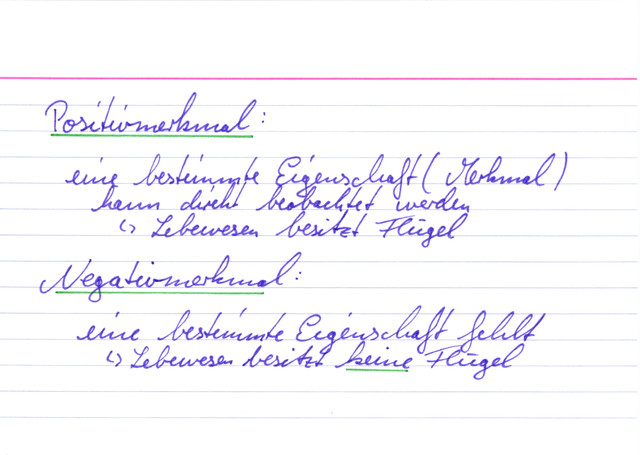 Positivmerkmal:
eine bestimmte Eigenschaft (Merkmal)
kann direkt beobachtet werden
↳ Lebewesen besitzt Flügel
Negativmerkmal:
eine bestimmte Eigenschaft fehlt
↳ Lebewesen besitzt keine Flügel